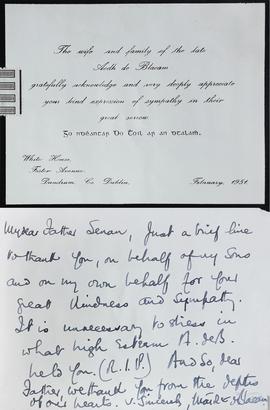 The wife and family of the late
Aodh de Blacam
gratefully acknowledge and very deeply appreciate
your kind expression of sympathy in their
great sorrow.
Go ndéantar Do Toil ar an dtalamh.
White House,
Foster Avenue,
Dundrum Co. Dublin.
February, 1951.
My dear Father Senan, Just a brief line
to thank you, on behalf of my Sons
and on my own behalf for your
great kindness and Sympathy.
It is unnecessary to stress in
what high Esteem A. de B.
held you. (R.I.P.) And So, dear
Father, we thank you from the depths
of our hearts. v. Sincerely, de Blacam